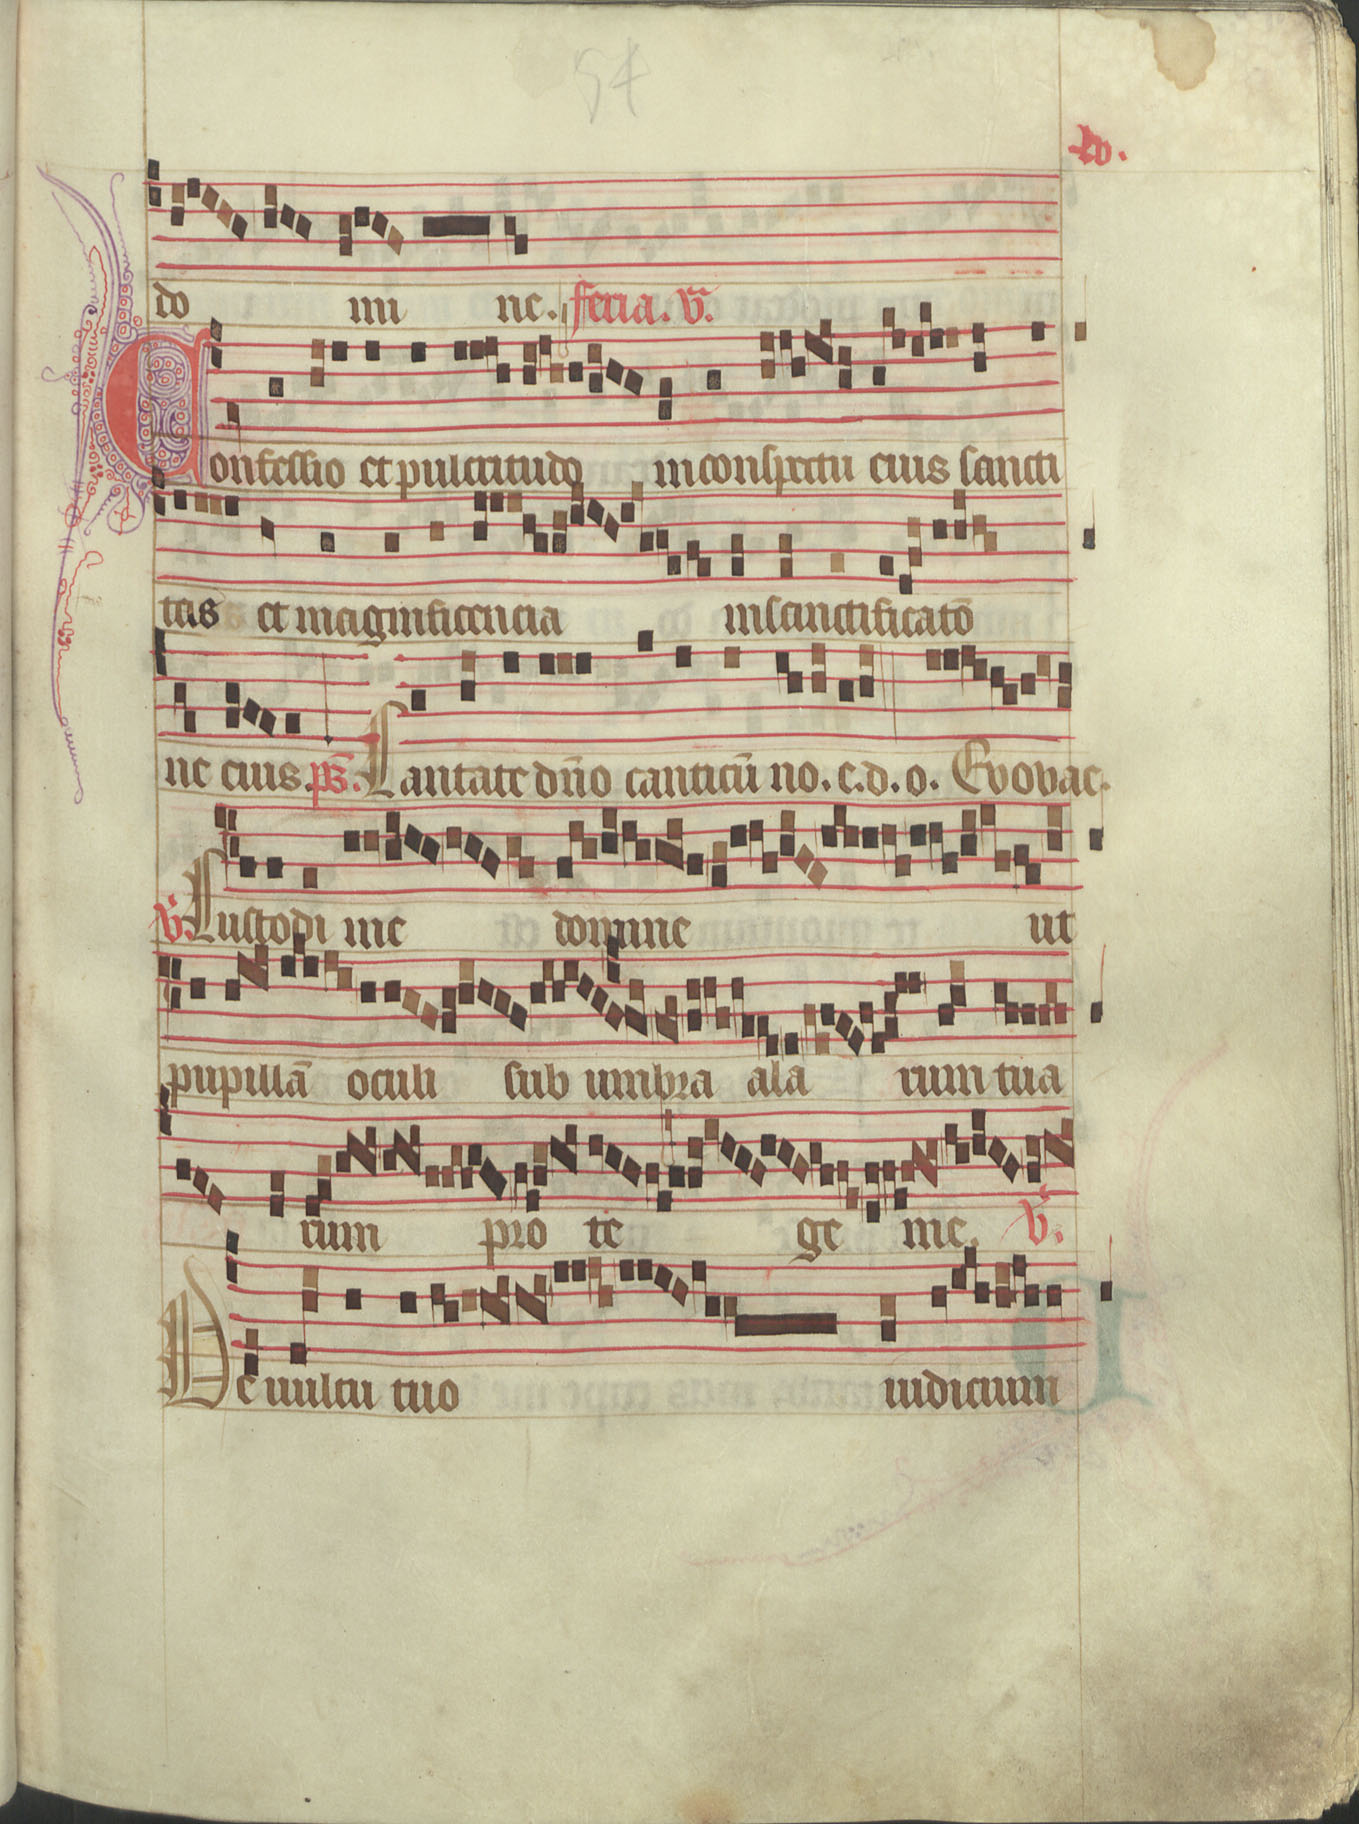 54
lv.
do mi ne. feria. v̄.
Confessio et pulcritudo in conspectu eius sancti
tas et magnificencia in sanctificatō
ne eius. ps̄. Cantate dn̄o canticū no. c. d. o. Evovae.
v̄. Custodi me domine ut
pupillā oculi sub umbra ala rum tua
rum pro te ge me. v̄.
De uultu tuo iudicium